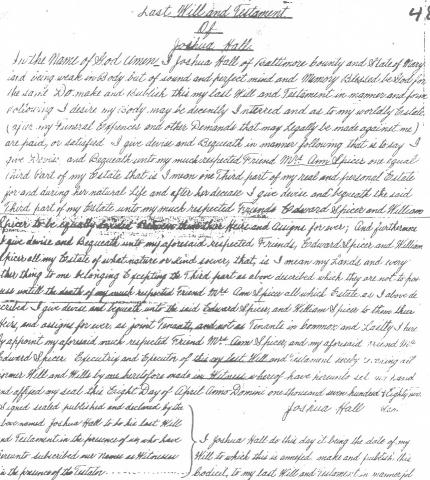 48
Last Will and Testament
Of
Joshua Hall
In the Name of God Amen, I Joshua Hall of Baltimore County and State of Mary
land being weak in Body but of sound and perfect mind and Memory Blessed be God for
the same Do make and Publish this my last Will and Testament in manner and form
following I desire my Body may be decently Interred and as to my worldly Estate
(after my Funeral Expences and other Demands that may legally be made against me)
are paid, or satisfied I give devise and Bequeath in manner following that is to say I
give devise and Bequeath unto my much respected Friend Mrs. Ann Spicer one equal
third Part of my Estate that is I mean one Third part of my real and personal Estate
for and during her natural Life and after her decease I give devise and bequeath the said
Third part of my Estate unto my much respected Friends Edward Spicer and William
Spicer to be equally divided between them their Heirs and Assigns for ever; And furthermore
I give devise and Bequeath unto my aforesaid respected Friends, Edward Spicer and William
Spicer all my Estate of what nature or kind soever, that is I mean my Lands and every
other thing to me belonging Excepting the Third part as above described which they are not to pos
sess untill the death of my much respected Friend Mrs Ann Spicer all which Estate as I above de
scribed I give devise and bequeath unto the said Edward Spicer, and William Spicer to them their
heirs, and assigns for ever, as joint Tenants, and not as Tenants in Common and Lastly I here
by appoint my aforesaid much respected Friend Mrs. Ann Spicer, and my aforesaid Friend Mr
Edward Spicer Executrix and Executor of this my last Will and Testament hereby revoking all
former Will and Wills by me heretofore made in Witness whereof have hereunto set my hand
and affixed my seal this Eight Day of April Anno Domini one thousand seven hundred & Eighty six
Signed sealed published and declared by the
Joshua Hall
above named Joshua Hall to be his last Will
and Testament in the presence of us who have
hereunto subscribed our Names as Witnesses
in the presence of the Testator
I Joshua Hall do this day it being the date of my
Will to which this is annexed, make and publish this
Codicil, to my last Will and Testament in manner fol